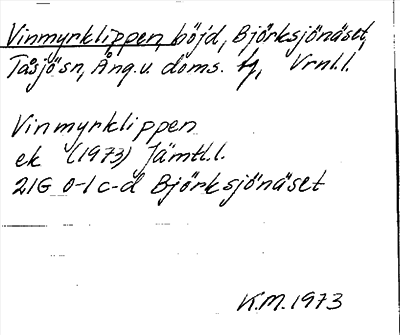 Vinmyrklippen, höjd, Björksjönäset,
Tåsjö sn, Ång. v. doms. Vrnl.l.
Vinmyrklippen
ek (1973) Jämtl.l.
21G 0-1 c-d Björksjönäset
K.M. 1973